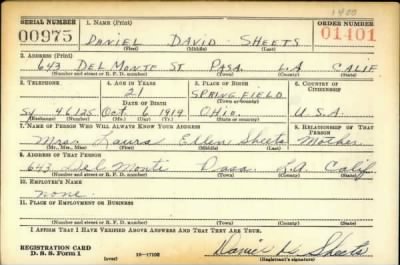 1400
SERIAL NUMBER 1. NAME (Print) ORDER NUMBER
00975 DANIEL DAVID SHEETS 01401
(First) (Middle) (Last)
2. ADDRESS (Print)
643 DEL MONTE ST PASA. LA CALIF
(Number and street or R. F. D. number) (Town) (County) (State)
3. TELEPHONE 4. AGE IN YEARS 5. PLACE OF BIRTH 6. COUNTRY OF CITIZENSHIP
21 SPRINGFIELD
DATE OF BIRTH (Town or county)
Sy 46125 Oct. 6 1919 OHIO. U.S.A.
(Exchange) (Number) (Mo.) (Day) (Yr.) (State or country)
7. NAME OF PERSON WHO WILL ALWAYS KNOW YOUR ADDRESS 8. RELATIONSHIP OF THAT PERSON
Mrs. Laura Ellen Sheets Mother
(Mr., Mrs., Miss) (First) (Middle) (Last)
9. ADDRESS OF THAT PERSON
643 Del Monte Pasa. L.A. Calif
(Number and street or R. F. D. number) (Town) (County) (State)
10. EMPLOYER'S NAME
none
11. PLACE OF EMPLOYMENT OR BUSINESS
(Number and street or R. F. D. number) (Town) (County) (State)
I AFFIRM THAT I HAVE VERIFIED ABOVE ANSWERS AND THAT THEY ARE TRUE.
REGISTRATION CARD
D. S. S. Form 1 (over) 16—17105 Daniel D Sheets
(Registrant's signature)